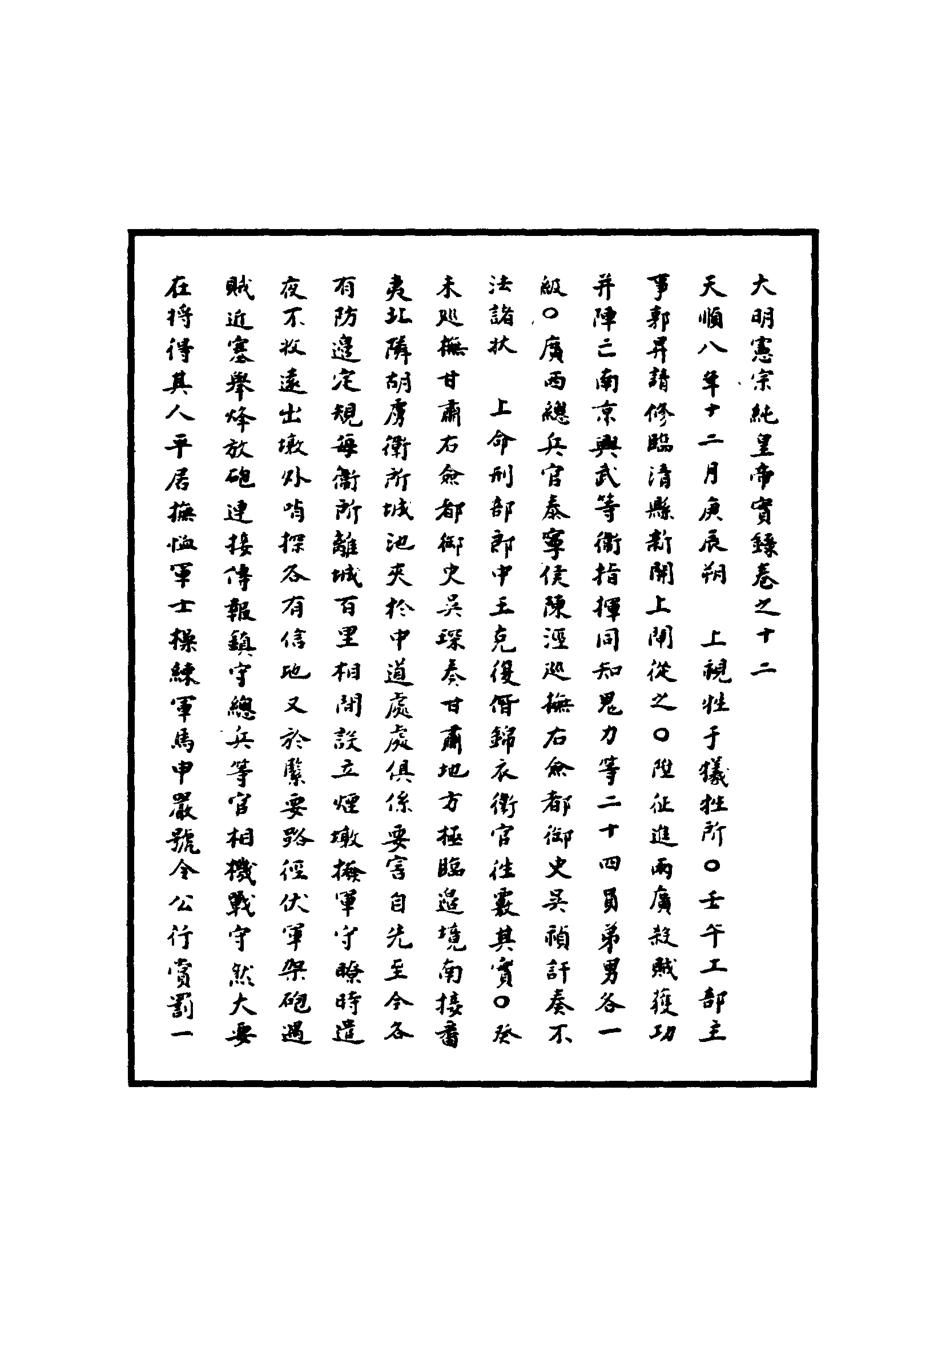 大明憲宗純皇帝實錄卷之十二
天順八年十二月庚辰朔　上視牲于犧牲所○壬午工部主
事郭昇請修臨清縣新開上閘從之○陞征進兩廣殺賊獲功
并陣亡南京興武等衛指揮同知鬼力等二十四員弟男各一
級○廣西總兵官泰寧侯陳涇巡撫右僉都御史吳禎訐奏不
法諸狀　上命刑部郎中王克復偕錦衣衛官往覈其實○癸
未巡撫甘肅右僉都御史吳琛奏甘肅地方極臨邊境南接番
夷北隣胡虜衛所城池夾於中道處處俱係要害自先至今各
有防邊定規每衛所離城百里相間設立煙墩撥軍守瞭時遣
夜不收遠出墩外哨探各有信地又於緊要路徑伏軍架砲遇
賊近塞舉烽放砲連接傳報鎮守總兵等官相機戰守然大要
在將得其人平居撫恤軍士操練軍馬申嚴號令公行賞罰一